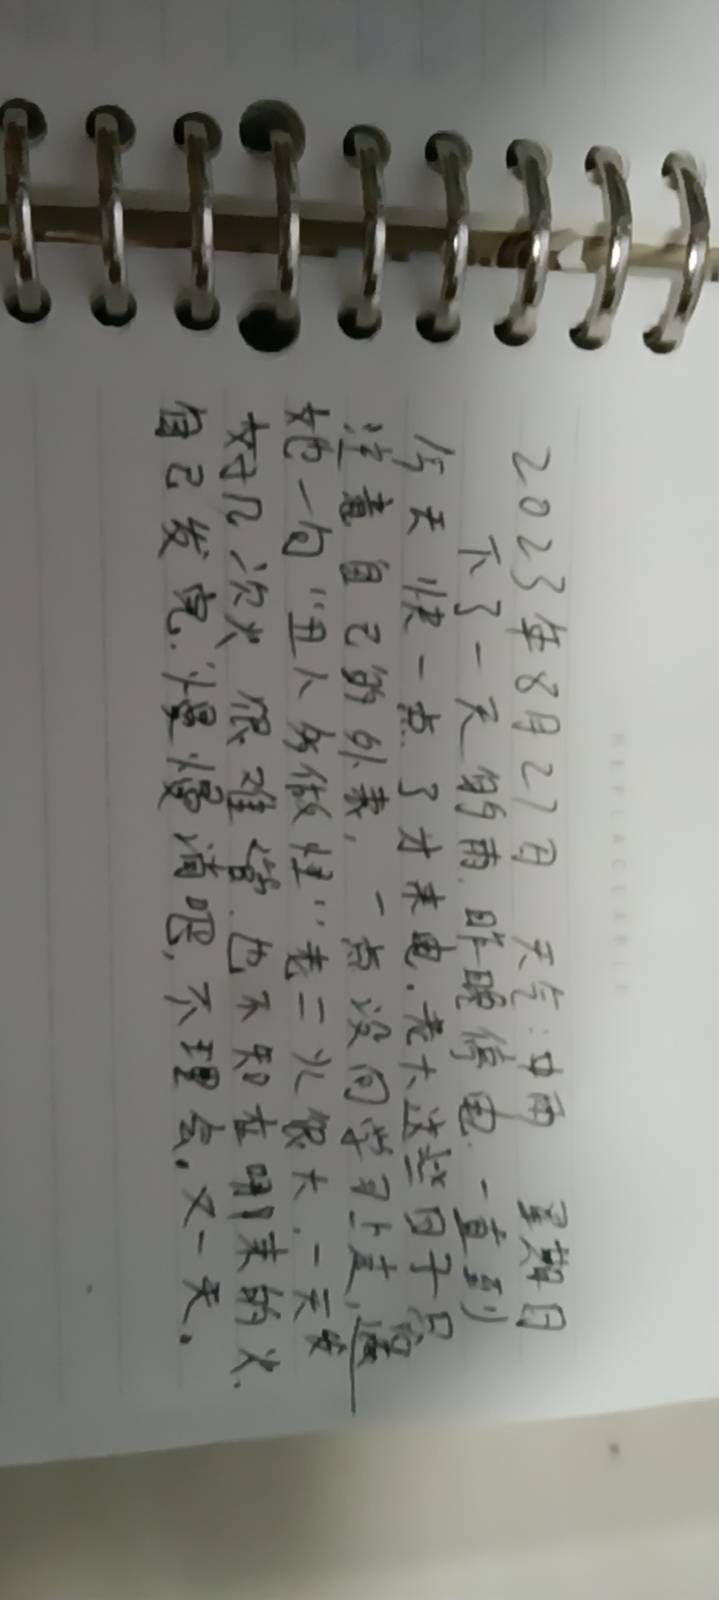 REPLACEABLE
2023年8月27日 天气:中雨 星期日
下了一天的雨.昨晚停电.一直到
今天快一点了才来电.老大这些日子只
注意自己的外表,一点没向学习上走,
她一句“丑人多做怪”老二火很大.一天发
好几次火 很难管.也不知在哪来的火.
自己发完.慢慢消吧,不理会。又一天.